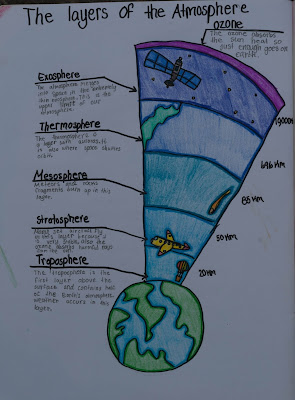 The layers of the Atmosphere
ozone
The ozone absorbs
the sun heat so
just enough goes on
earth.
Exosphere
The atmosphere merges
into space in the extremely
thin exosphere. This is the
upper limit of our
atmosphere.
Thermosphere
The thermosphere is
a layer with auroras. It
is also where space shuttles
orbit.
Mesosphere
Meteors and rocks
fragments burn up in this
layer.
Stratosphere
layer because it
is very stable. Also the
ozone
the sun.
Troposphere
The troposphere is the
first layer above the
surface and contains half
of the Earth's atmosphere.
weather occurs in this
layer.
690 Km
85 Km
50 Km
20 Km